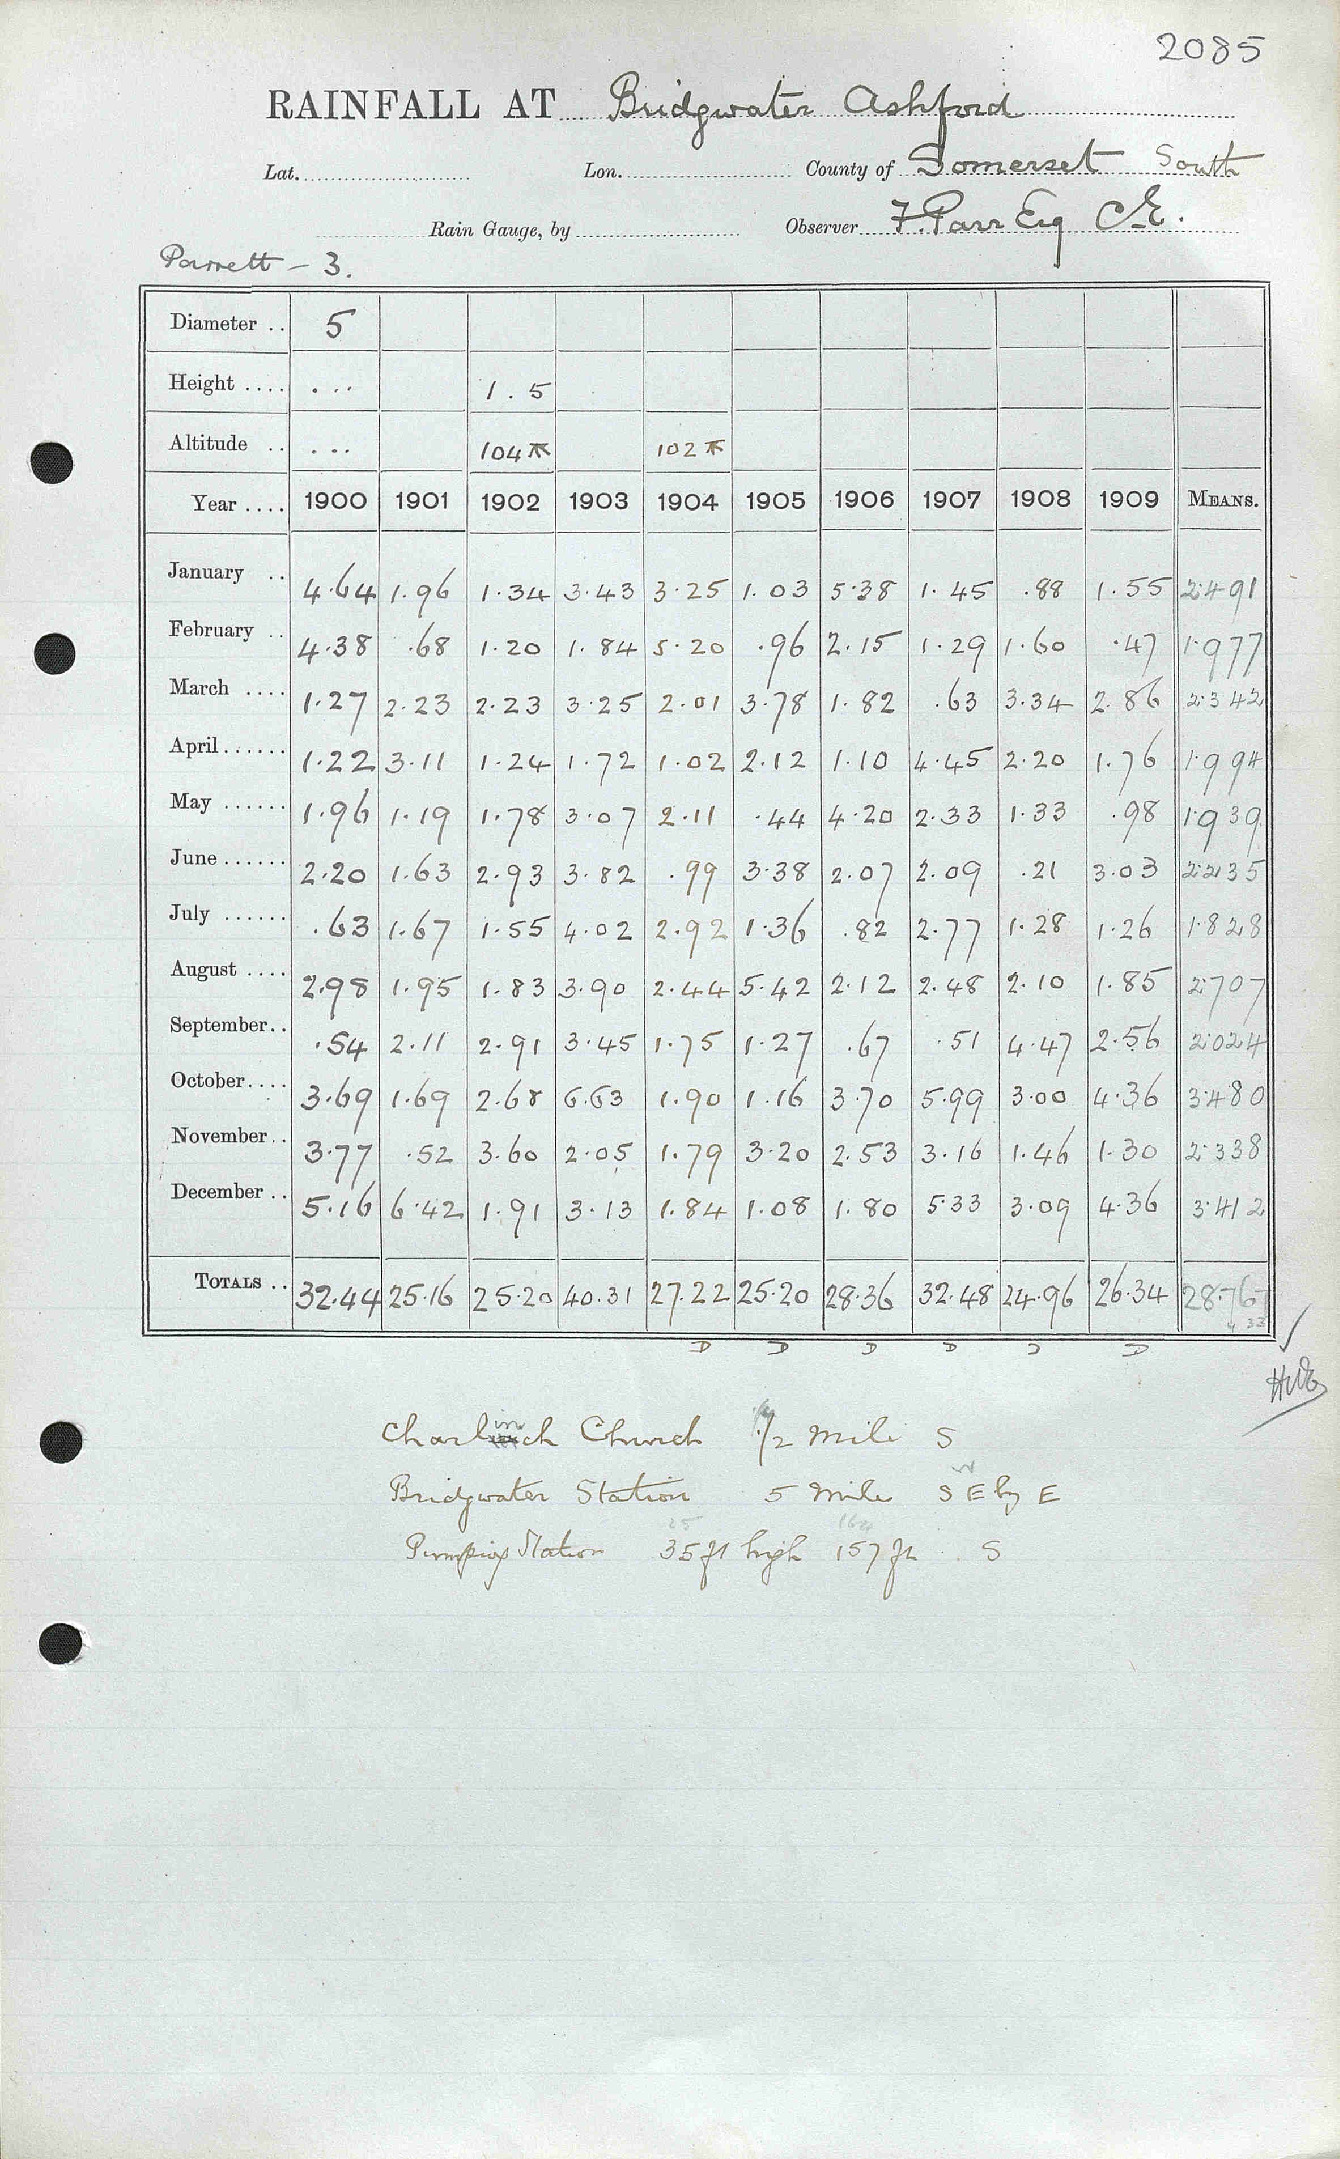 2085
RAINFALL AT Bridgwater Ashford
Lat. Lon. County of Somerset South
Rain Gauge, by Observer F. Parr Esq C.E.
Parrett - 3.
Diameter .. 5
Height .... ... 1.5
Altitude .. ... 104 102
Year .... 1900 1901 1902 1903 1904 1905 1906 1907 1908 1909 MEANS.
January .. 4.64 1.96 1.34 3.43 3.25 1.03 5.38 1.45 .88 1.55 2.491
February .. 4.38 .68 1.20 1.84 5.20 .96 2.15 1.29 1.60 .47 1.977
March .... 1.27 2.23 2.23 3.25 2.01 3.78 1.82 .63 3.34 2.86 2.342
April...... 1.22 3.11 1.24 1.72 1.02 2.12 1.10 4.45 2.20 1.76 1.994
May ...... 1.96 1.19 1.78 3.07 2.11 .44 4.20 2.33 1.33 .98 1.939
June ...... 2.20 1.63 2.93 3.82 .99 3.38 2.07 2.09 .21 3.03 2.235
July ...... .63 1.67 1.55 4.02 2.92 1.36 .82 2.77 1.28 1.26 1.828
August .... 2.98 1.95 1.83 3.90 2.44 5.42 2.12 2.48 2.10 1.85 2.707
September.. .54 2.11 2.91 3.45 1.75 1.27 .67 .51 4.47 2.56 2.024
October.... 3.69 1.69 2.68 6.63 1.90 1.16 3.70 5.99 3.00 4.36 3.480
November.. 3.77 .52 3.60 2.05 1.79 3.20 2.53 3.16 1.46 1.30 2.338
December .. 5.16 6.42 1.91 3.13 1.84 1.08 1.80 5.33 3.09 4.36 3.412
TOTALS .. 32.44 25.16 25.20 40.31 27.22 25.20 28.36 32.48 24.96 26.34 28.767
D D D D D D
Charlinch Church 1/2 mile S
Bridgwater Station 5 mile S E by E
Pumping Station 35 ft high 157 ft S